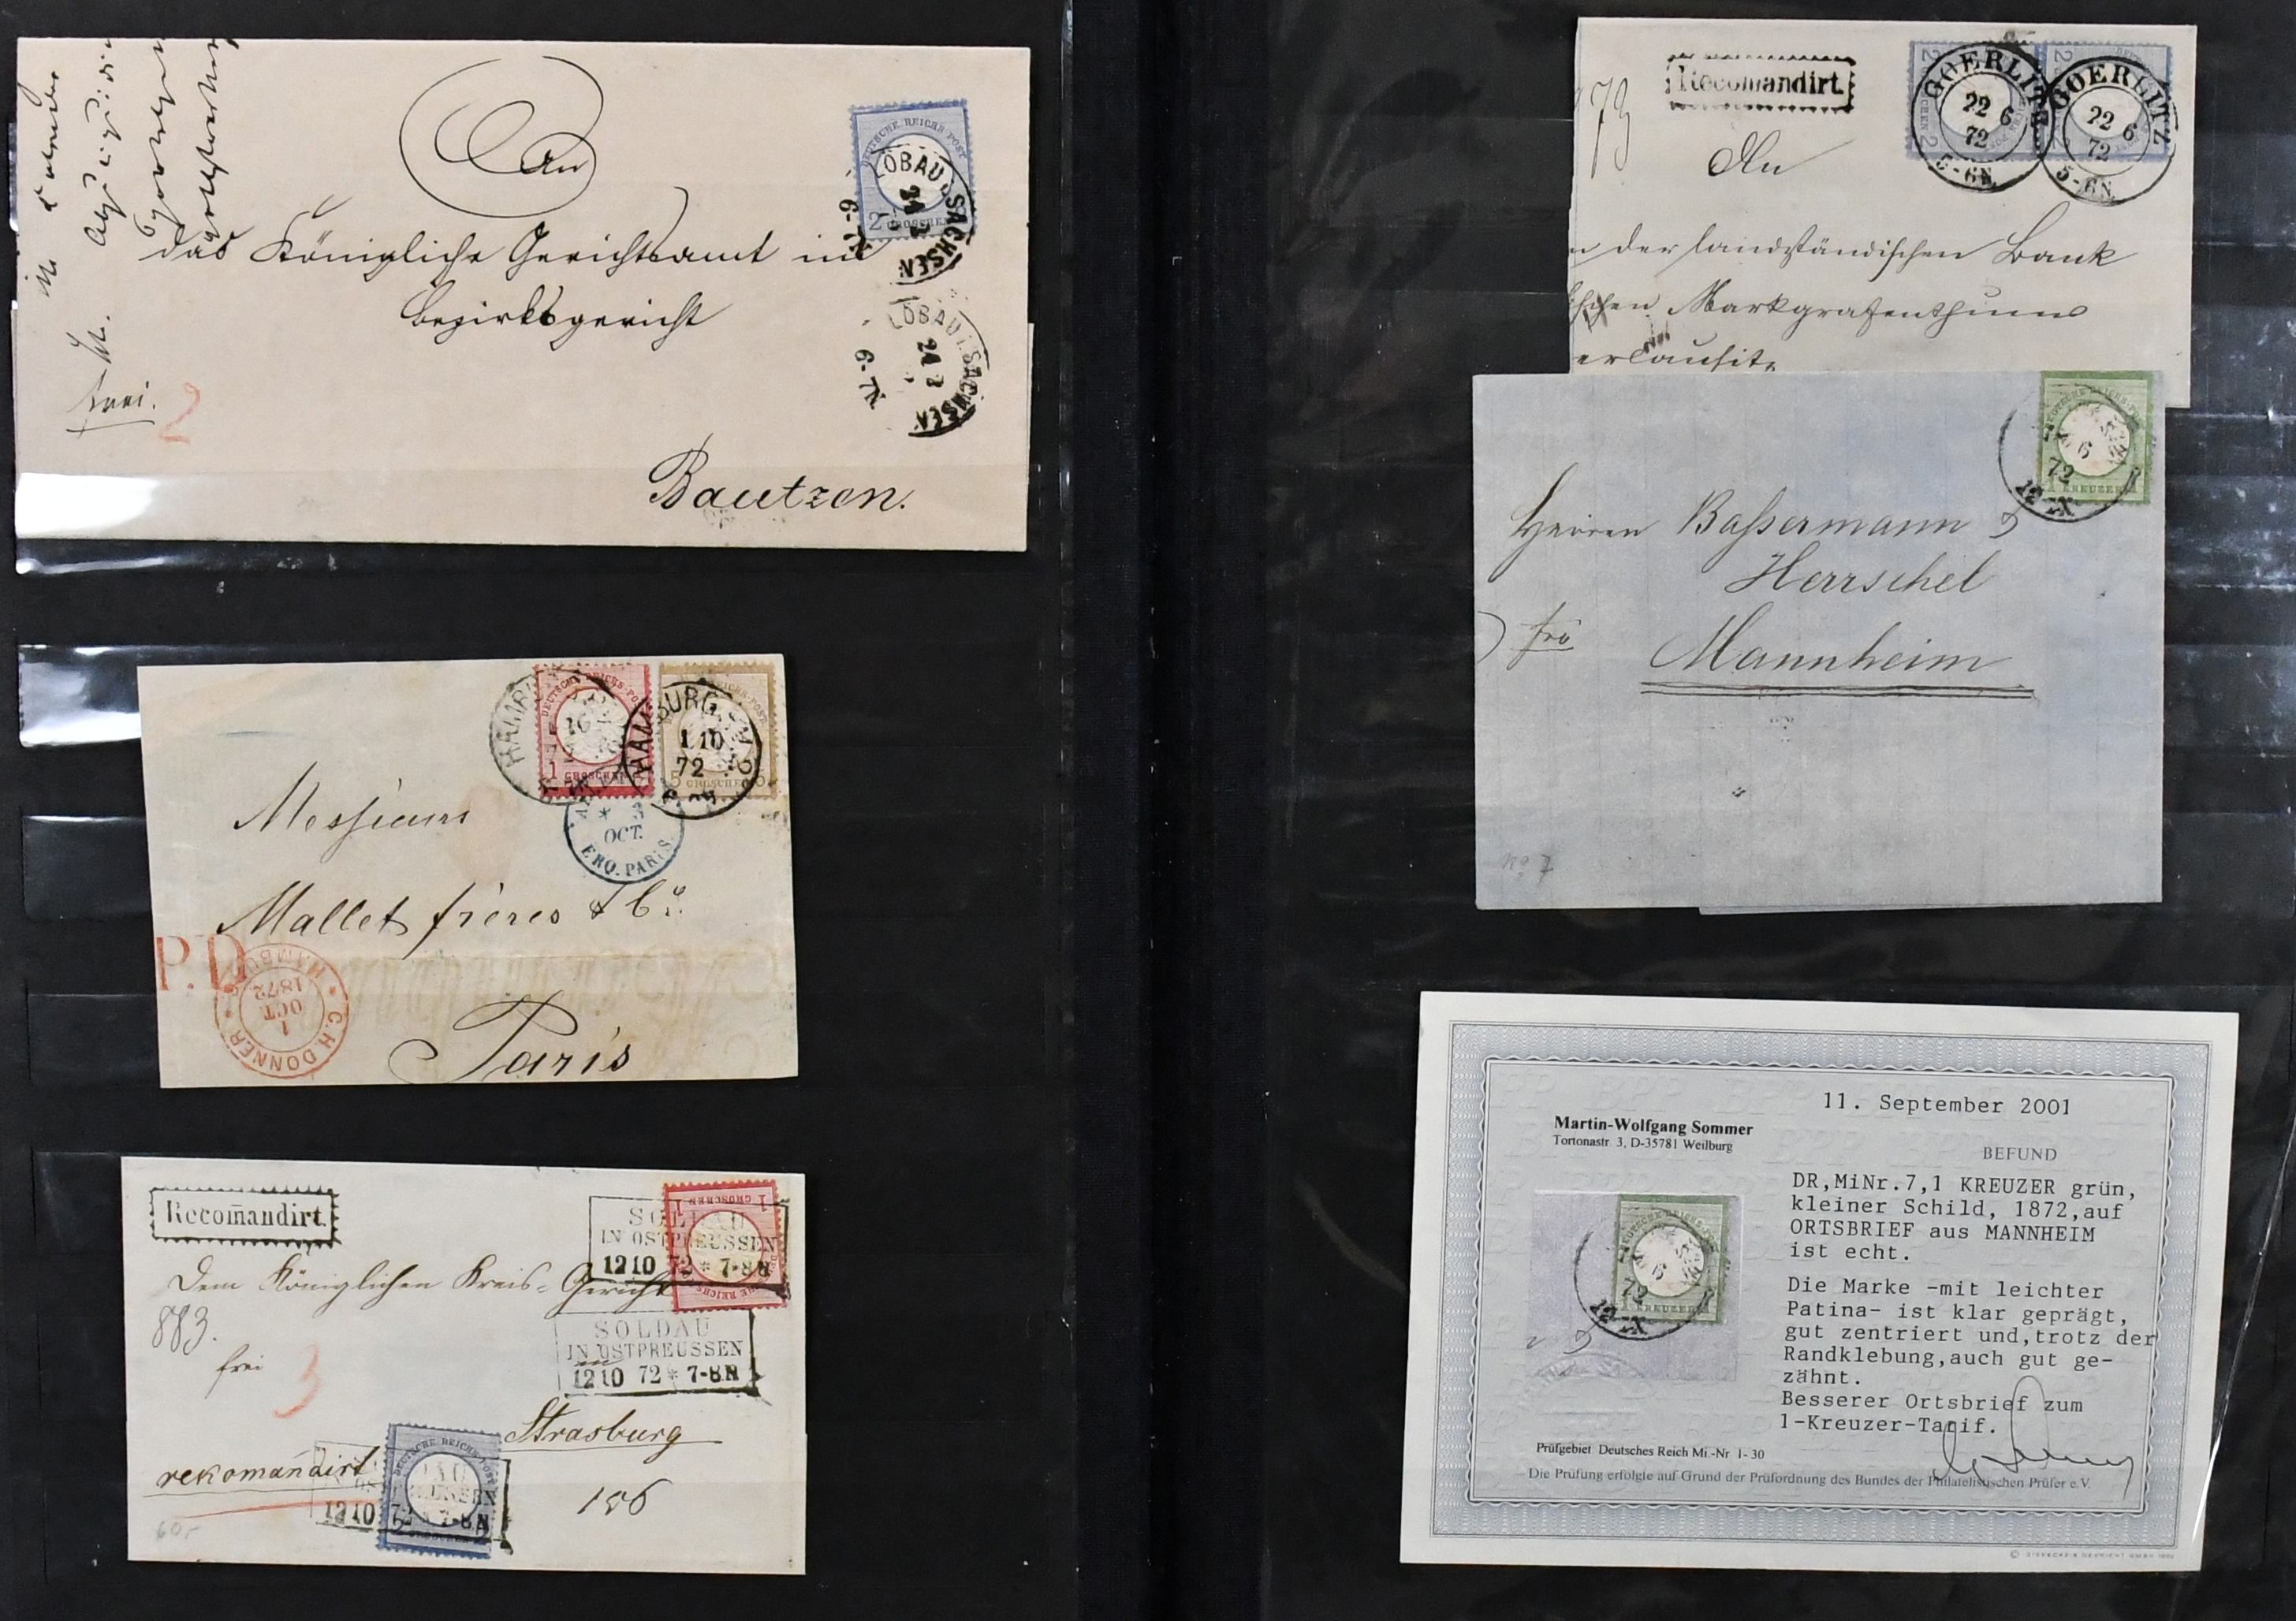 An
das Königliche Gerichtsamt im
Bezirksgericht
frei.
2
Bautzen.
DEUTSCHE REICHS-POST
2 GROSCHEN
LÖBAU i. SACHSEN
24
6-7N
LÖBAU i. SACHSEN
24
6-7N
DEUTSCHE REICHS-POST
1 GROSCHEN
5 GROSCHEN
HAMBURG
1 10
72
OCT.
ERQ. PARIS
Messieurs
Mallet frères & Co.
P.D.
C.H. DONNER * HAMBURG *
1
OCT
1872
Paris
Recomandirt.
1 GROSCHEN 1
SOLDAU
IN OSTPREUSSEN
12 10 72 * 7-8N
Dem Königlichen Kreis-Gericht
883.
SOLDAU
IN OSTPREUSSEN
12 10 72 * 7-8N
in
frei
3
Strasburg
rekomandirt
DEUTSCHE REICHS-POST
12 10 72 * 7-8N
156
60,-
Recomandirt.
73
GOERLITZ
22 6
72
5-6N.
GOERLITZ
22 6
72
5-6N.
An
der landständischen Bank
Markgrafenthums
DEUTSCHE REICHS-POST
1 KREUZER 1
6
72
12-X
Herren Baßermann &
Herrschel
fro
Mannheim
No 7
11. September 2001
Martin-Wolfgang Sommer
Tortonastr. 3, D-35781 Weilburg
BEFUND
DR,MiNr.7,1 KREUZER grün,
kleiner Schild, 1872,auf
ORTSBRIEF aus MANNHEIM
ist echt.
Die Marke -mit leichter
Patina- ist klar geprägt,
gut zentriert und,trotz der
Randklebung,auch gut ge-
zähnt.
Besserer Ortsbrief zum
1-Kreuzer-Tarif.
Prüfgebiet Deutsches Reich Mi.-Nr. 1-30
Die Prüfung erfolgte auf Grund der Prüfordnung des Bundes der Philatelistischen Prüfer e.V.